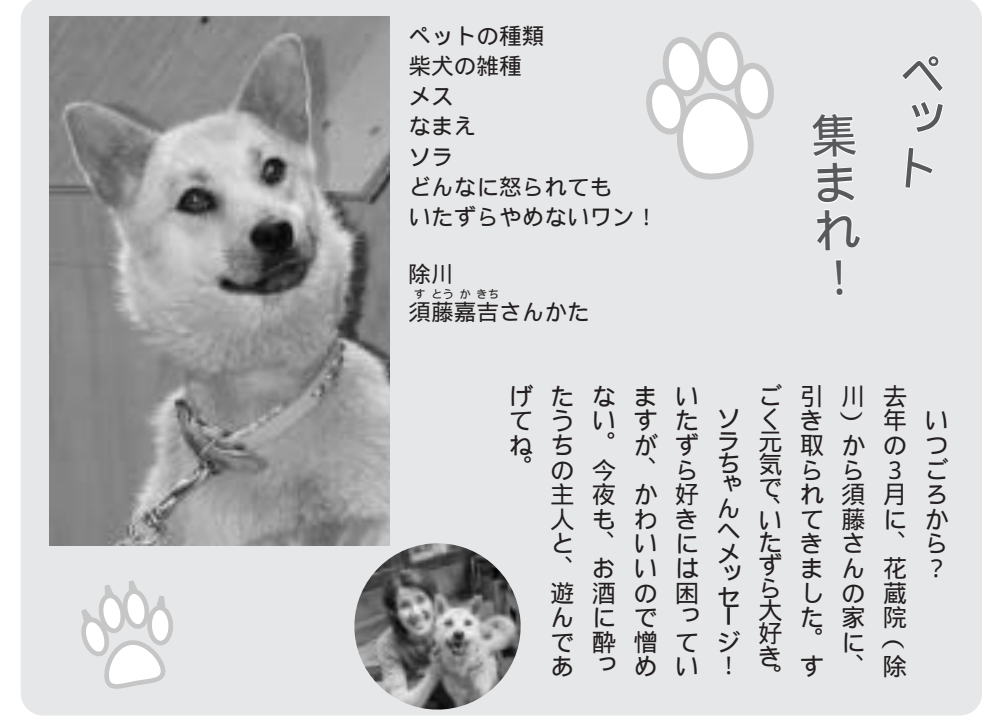 ペット
集まれ！
ペットの種類
柴犬の雑種
メス
なまえ
ソラ
どんなに怒られても
いたずらやめないワン！
除川
すとうかきち
須藤嘉吉さんかた
いつごろから？
去年の３月に、花蔵院（除
川）から須藤さんの家に、
引き取られてきました。す
ごく元気で、いたずら大好き。
ソラちゃんへメッセージ！
いたずら好きには困ってい
ますが、かわいいので憎め
ない。今夜も、お酒に酔っ
たうちの主人と、遊んであ
げてね。